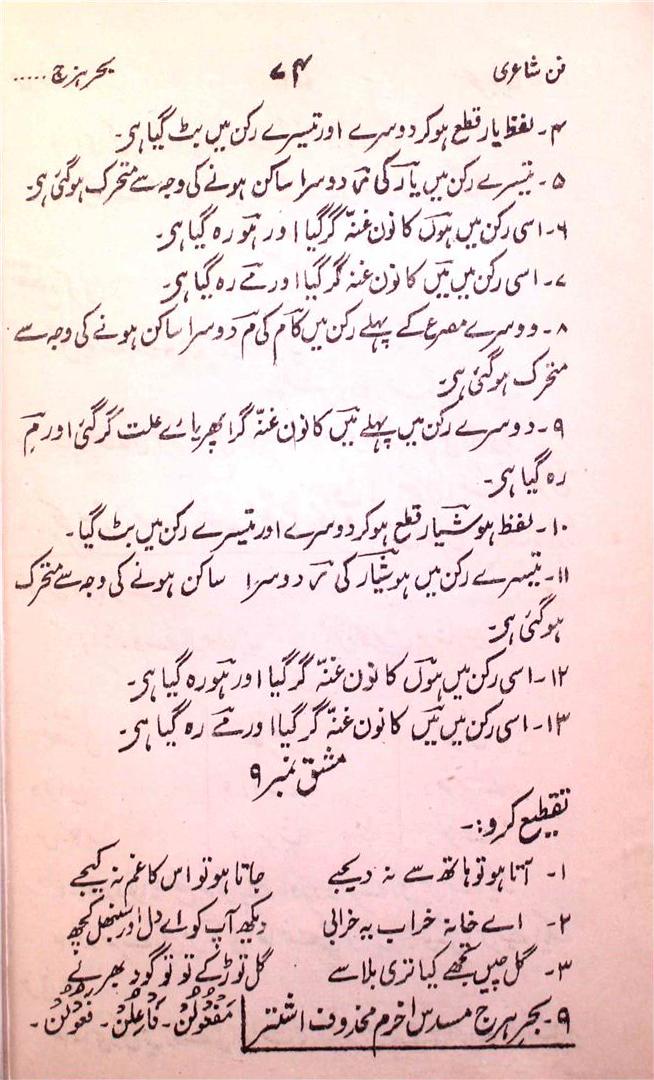 فن شاعری ۷۴ بحر ہزج .....
۴۔ لفظ یار قطع ہو کر دوسرے اور تیسرے رکن میں بٹ گیا ہی۔
۵۔ تیسرے رکن میں یار کی ر دوسرا ساکن ہونے کی وجہ سے متحرک ہو گئی ہی۔
۶۔ اسی رکن میں ہوں کا نون غنہ گر گیا اور ہو رہ گیا ہی۔
۷۔ اسی رکن میں میں کا نون غنہ گر گیا اور مے رہ گیا ہی۔
۸۔ دوسرے مصرع کے پہلے رکن میں کام کی م دوسرا ساکن ہونے کی وجہ سے
متحرک ہو گئی ہی۔
۹۔ دوسرے رکن میں پہلے میں کا نون غنہ گرا پھر یاے علت گر گئی اور مِ
رہ گیا ہی۔
۱۰۔ لفظ ہوشیار قطع ہو کر دوسرے اور تیسرے رکن میں بٹ گیا۔
۱۱۔ تیسرے رکن میں ہوشیار کی ر دوسرا ساکن ہونے کی وجہ سے متحرک
ہو گئی ہی۔
۱۲۔ اسی رکن میں ہوں کا نون غنہ گر گیا اور ہو رہ گیا ہی۔
۱۳۔ اسی رکن میں میں کا نون غنہ گر گیا اور مے رہ گیا ہی۔
مشق نمبر ۹
تقطیع کرو:۔
۱۔ آتا ہو تو ہاتھ سے نہ دیجے جاتا ہو تو اس کا غم نہ کیجے
۲۔ اے خانہ خراب یہ خرابی دیکھ آپ کو اے دل اور سنبھل کچھ
۳۔ گل چیں تجھے کیا تری بلا سے گل توڑ کے تو تو گود بھر لے
۹۔ بحر ہزج مسدس اخرم محذوف اشتر مَفْعُوْلُنْ۔ فَاعِلُنْ۔ فَعُوْلُنْ۔